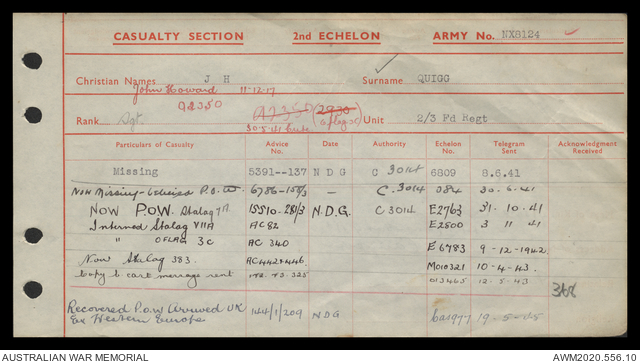 CASUALTY SECTION 2nd ECHELON ARMY No. NX8124
Christian Names J H Surname QUIGG
John Howard 11-12-17
92350
Rank Sgt. 92350 (2930 Unit 2/3 Fd Regt
30.5.41
Particulars of Casualty Advice No. Date Authority Echelon No. Telegram Sent Acknowledgment Received
Missing 5391--137 N D G C 3014 6809 8.6.41
Now Missing P.O.W. 6786-150/3 — C.3014 984 30.6.41
NOW P.O.W. Stalag 7A 15510-281/3 N.D.G. C 3014 E2763 31.10.41
Interned Stalag VIIA AC 82 E2500 3 11 41
" OFLAG 3C AC 340 E6783 9-12-1942.
Now Stalag 383. AC442+446. M010321 10-4-43.
Copy b. card message sent 013465 12.5.43
368
Recovered P.O.W Arrived UK 144/1/209 NDG 19-5-45
Ex Western Europe
AUSTRALIAN WAR MEMORIAL AWM2020.556.10